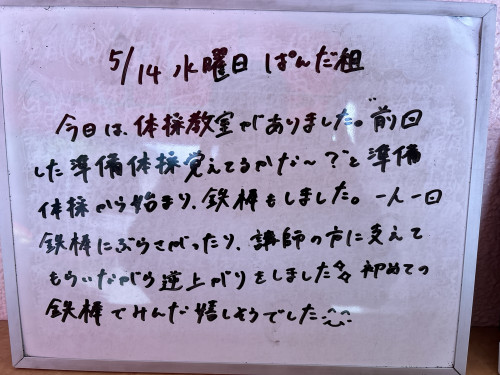 5/14 水曜日 ぱんだ組
今日は、体操教室がありました。"前回
した準備体操覚えてるかな〜?"と準備
体操から始まり、鉄棒もしました。一人一回
鉄棒にぶらさがったり、講師の方に支えて
もらいながら逆上がりをしました☆ 初めての
鉄棒でみんな嬉しそうでした^^